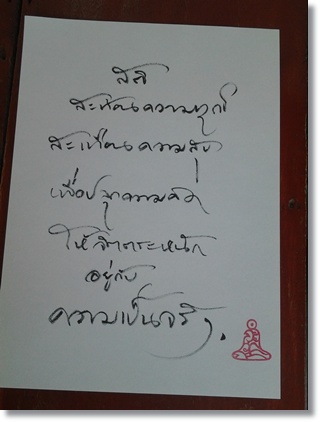 สติ
สะท้อนความทุกข์
สะเทือนความสุข
เพื่อปลุกความคิด
ให้จิตตระหนัก
อยู่กับ
ความเป็นจริง.